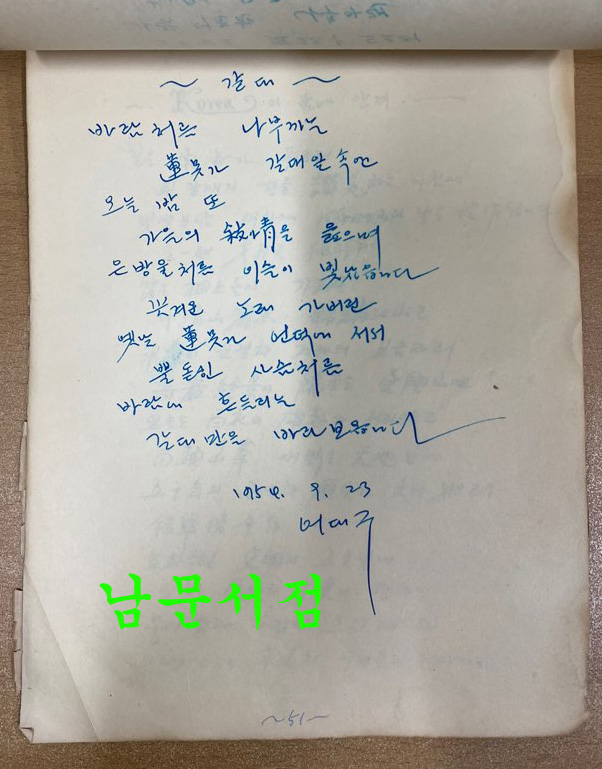 ~ 갈대 ~
바람처름 나부끼는
蓮못가 갈대잎 속엔
오늘 밤 또
가을의 敍情을 읊으며
은방울처름 이슬이 빛났읍니다
흥겨운 노래 가버린
옛날 蓮못가 언덕에 서서
뿔 돋힌 사슴처름
바람에 흔들리는
갈대만을 바라보옵니다
1954. 9. 23
남문서점
~51~